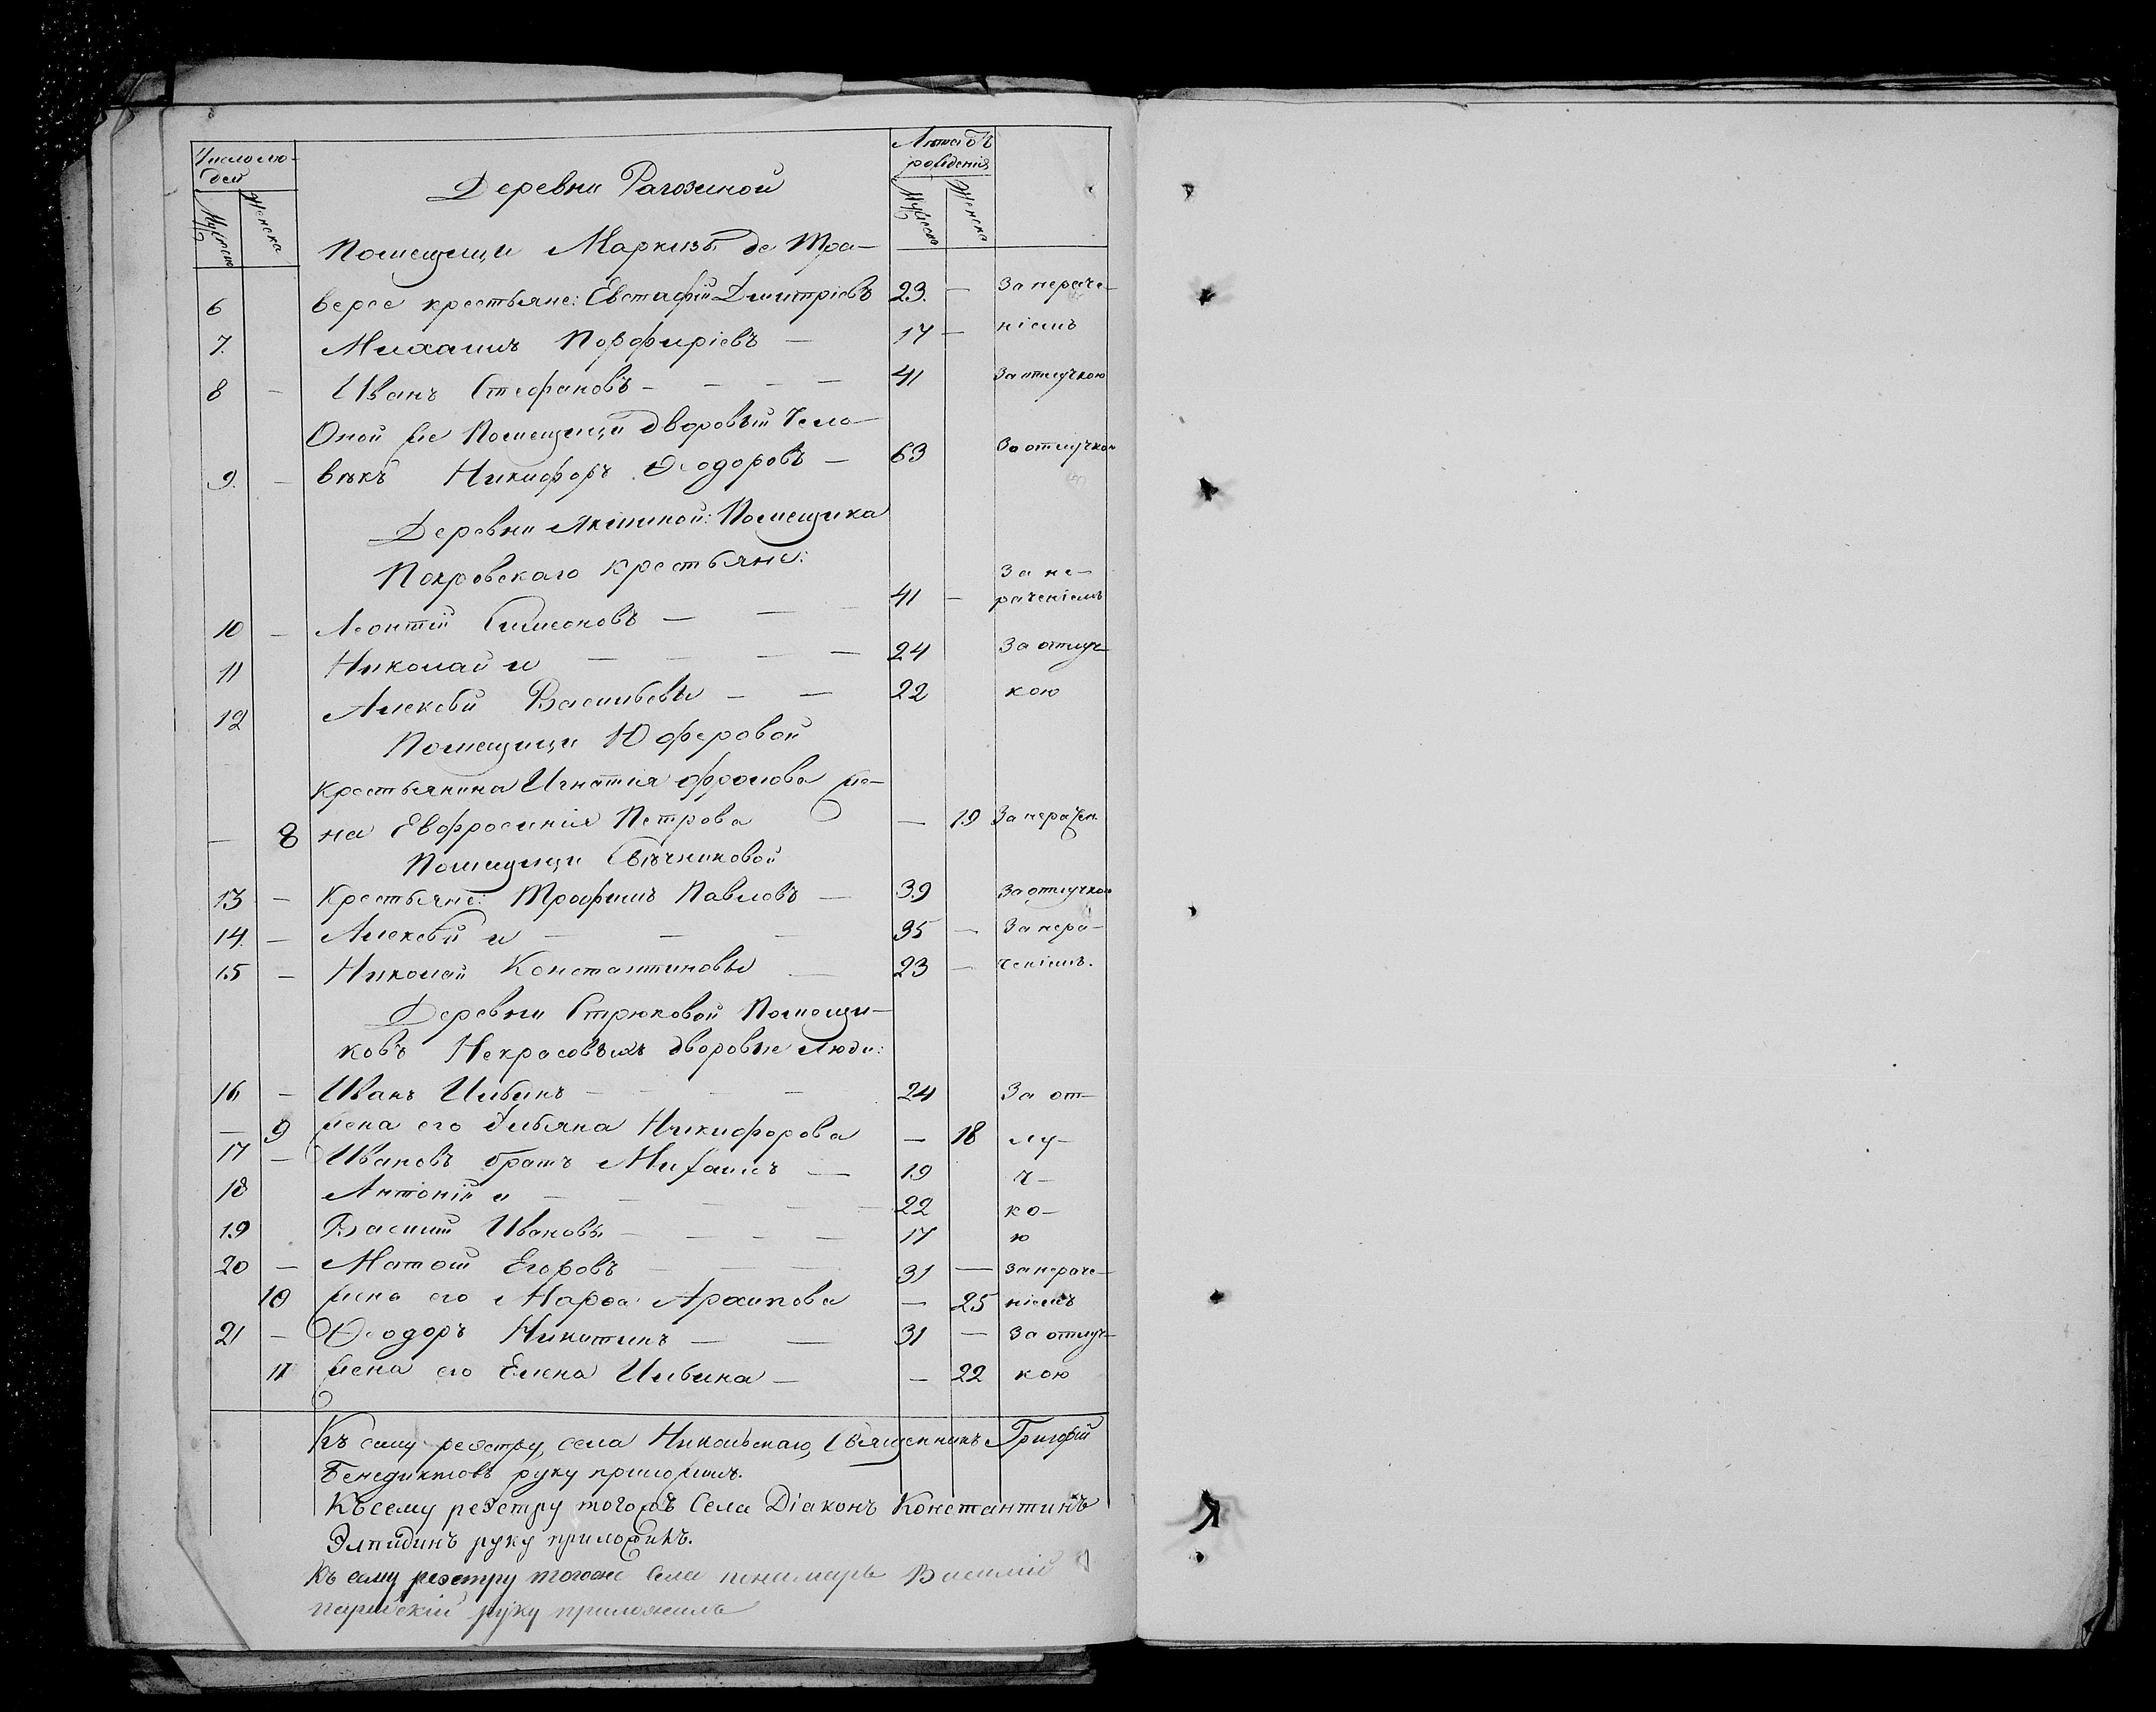 Число лю-
дей
Мужска
Женска
Деревни Рагозиной
Лета отъ
рожденія
Мужска
Женска
Помещицы Маркизы де Тра-
6 версе крестьяне: Евстафій Дмитріевъ 23. — За нераче-
7. Михаилъ Порфиріевъ — 17 — ніемъ
8 — Иванъ Стефановъ - — — — 41 За отлучкою
Оной же Помещицы дворовый Чело-
9. — вѣкъ Никифоръ Ѳеодоровъ — 63 За отлучкою
Деревни Якшиной: Помещика
Покровскаго крестьяне:
10 — Леонтій Симеоновъ — — — 41 — За не-
раченіемъ
11 Николай и — — — — 24 За отлуч-
12 Алексѣй Васильевы — — 22 кою
Помещицы Юферовой
крестьянина Игнатія Фролова же-
— 8 на Евфросинія Петрова — 19 За нерачен.
Помещицы Свѣчниковой
13 — Крестьяне: Трофимъ Павловъ — 39 За отлучкою
14. — Алексѣй и — — — 35 — За нера-
15 — Николай Константиновы — 23 — ченіемъ.
Деревни Стрюковой Помещи-
ковъ Некрасовыхъ дворовые люди:
16 — Иванъ Ильинъ — — — — 24 За от-
— 9 жена его Ульяна Никифорова — 18 лу-
17 — Ивановъ братъ Михаилъ — 19 ч-
18 Антоній и — — — — 22 ко-
19 Василій Ивановы — — — — 17 ю
20 — Матѳій Егоровъ — — — 31 — за нераче-
10 жена его Марѳа Архипова — 25 ніемъ
21 — Ѳеодоръ Никитинъ — — 31 — За отлуч-
11 жена его Елена Ильина — — 22 кою
Къ сему реэстру, села Никольскаго, Священникъ Григорій
Бенедиктовъ руку приложилъ.
Къ сему реэстру тогожъ Села Діаконъ Константинъ
Элпидинъ руку приложилъ.
Къ сему реэстру тогоже Села пономарь Василій
руку приложилъ